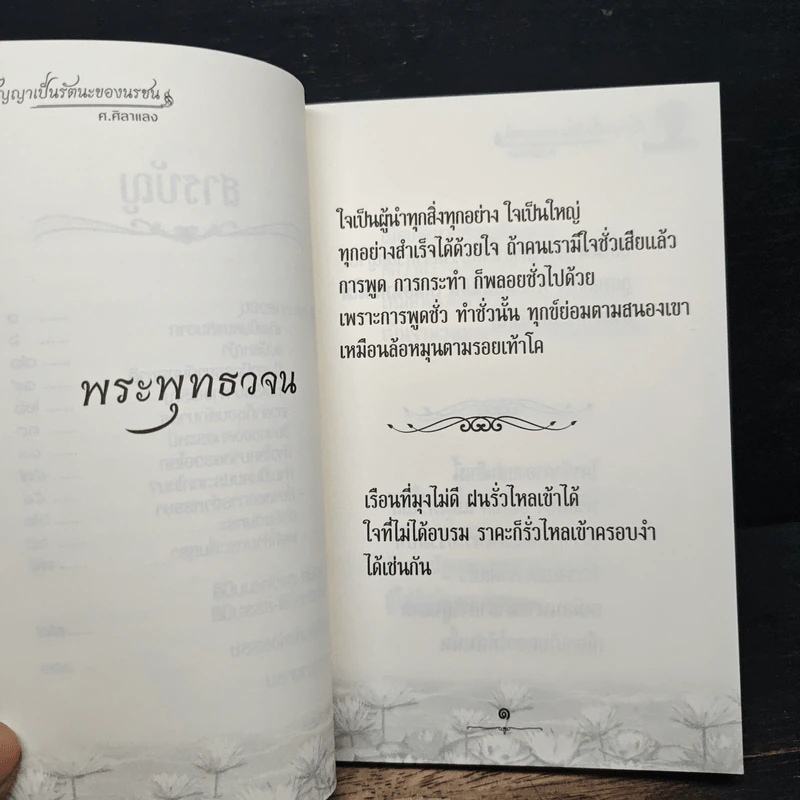 ญญาเป็นรัตนะของนรชน
ศ.ศิลาแลง
พระพุทธวจน
ใจเป็นผู้นำทุกสิ่งทุกอย่าง ใจเป็นใหญ่
ทุกอย่างสำเร็จได้ด้วยใจ ถ้าคนเรามีใจชั่วเสียแล้ว
การพูด การกระทำ ก็พลอยชั่วไปด้วย
เพราะการพูดชั่ว ทำชั่วนั้น ทุกข์ย่อมตามสนองเขา
เหมือนล้อหมุนตามรอยเท้าโค
เรือนที่มุงไม่ดี ฝนรั่วไหลเข้าได้
ใจที่ไม่ได้อบรม ราคะก็รั่วไหลเข้าครอบงำ
ได้เช่นกัน
๑